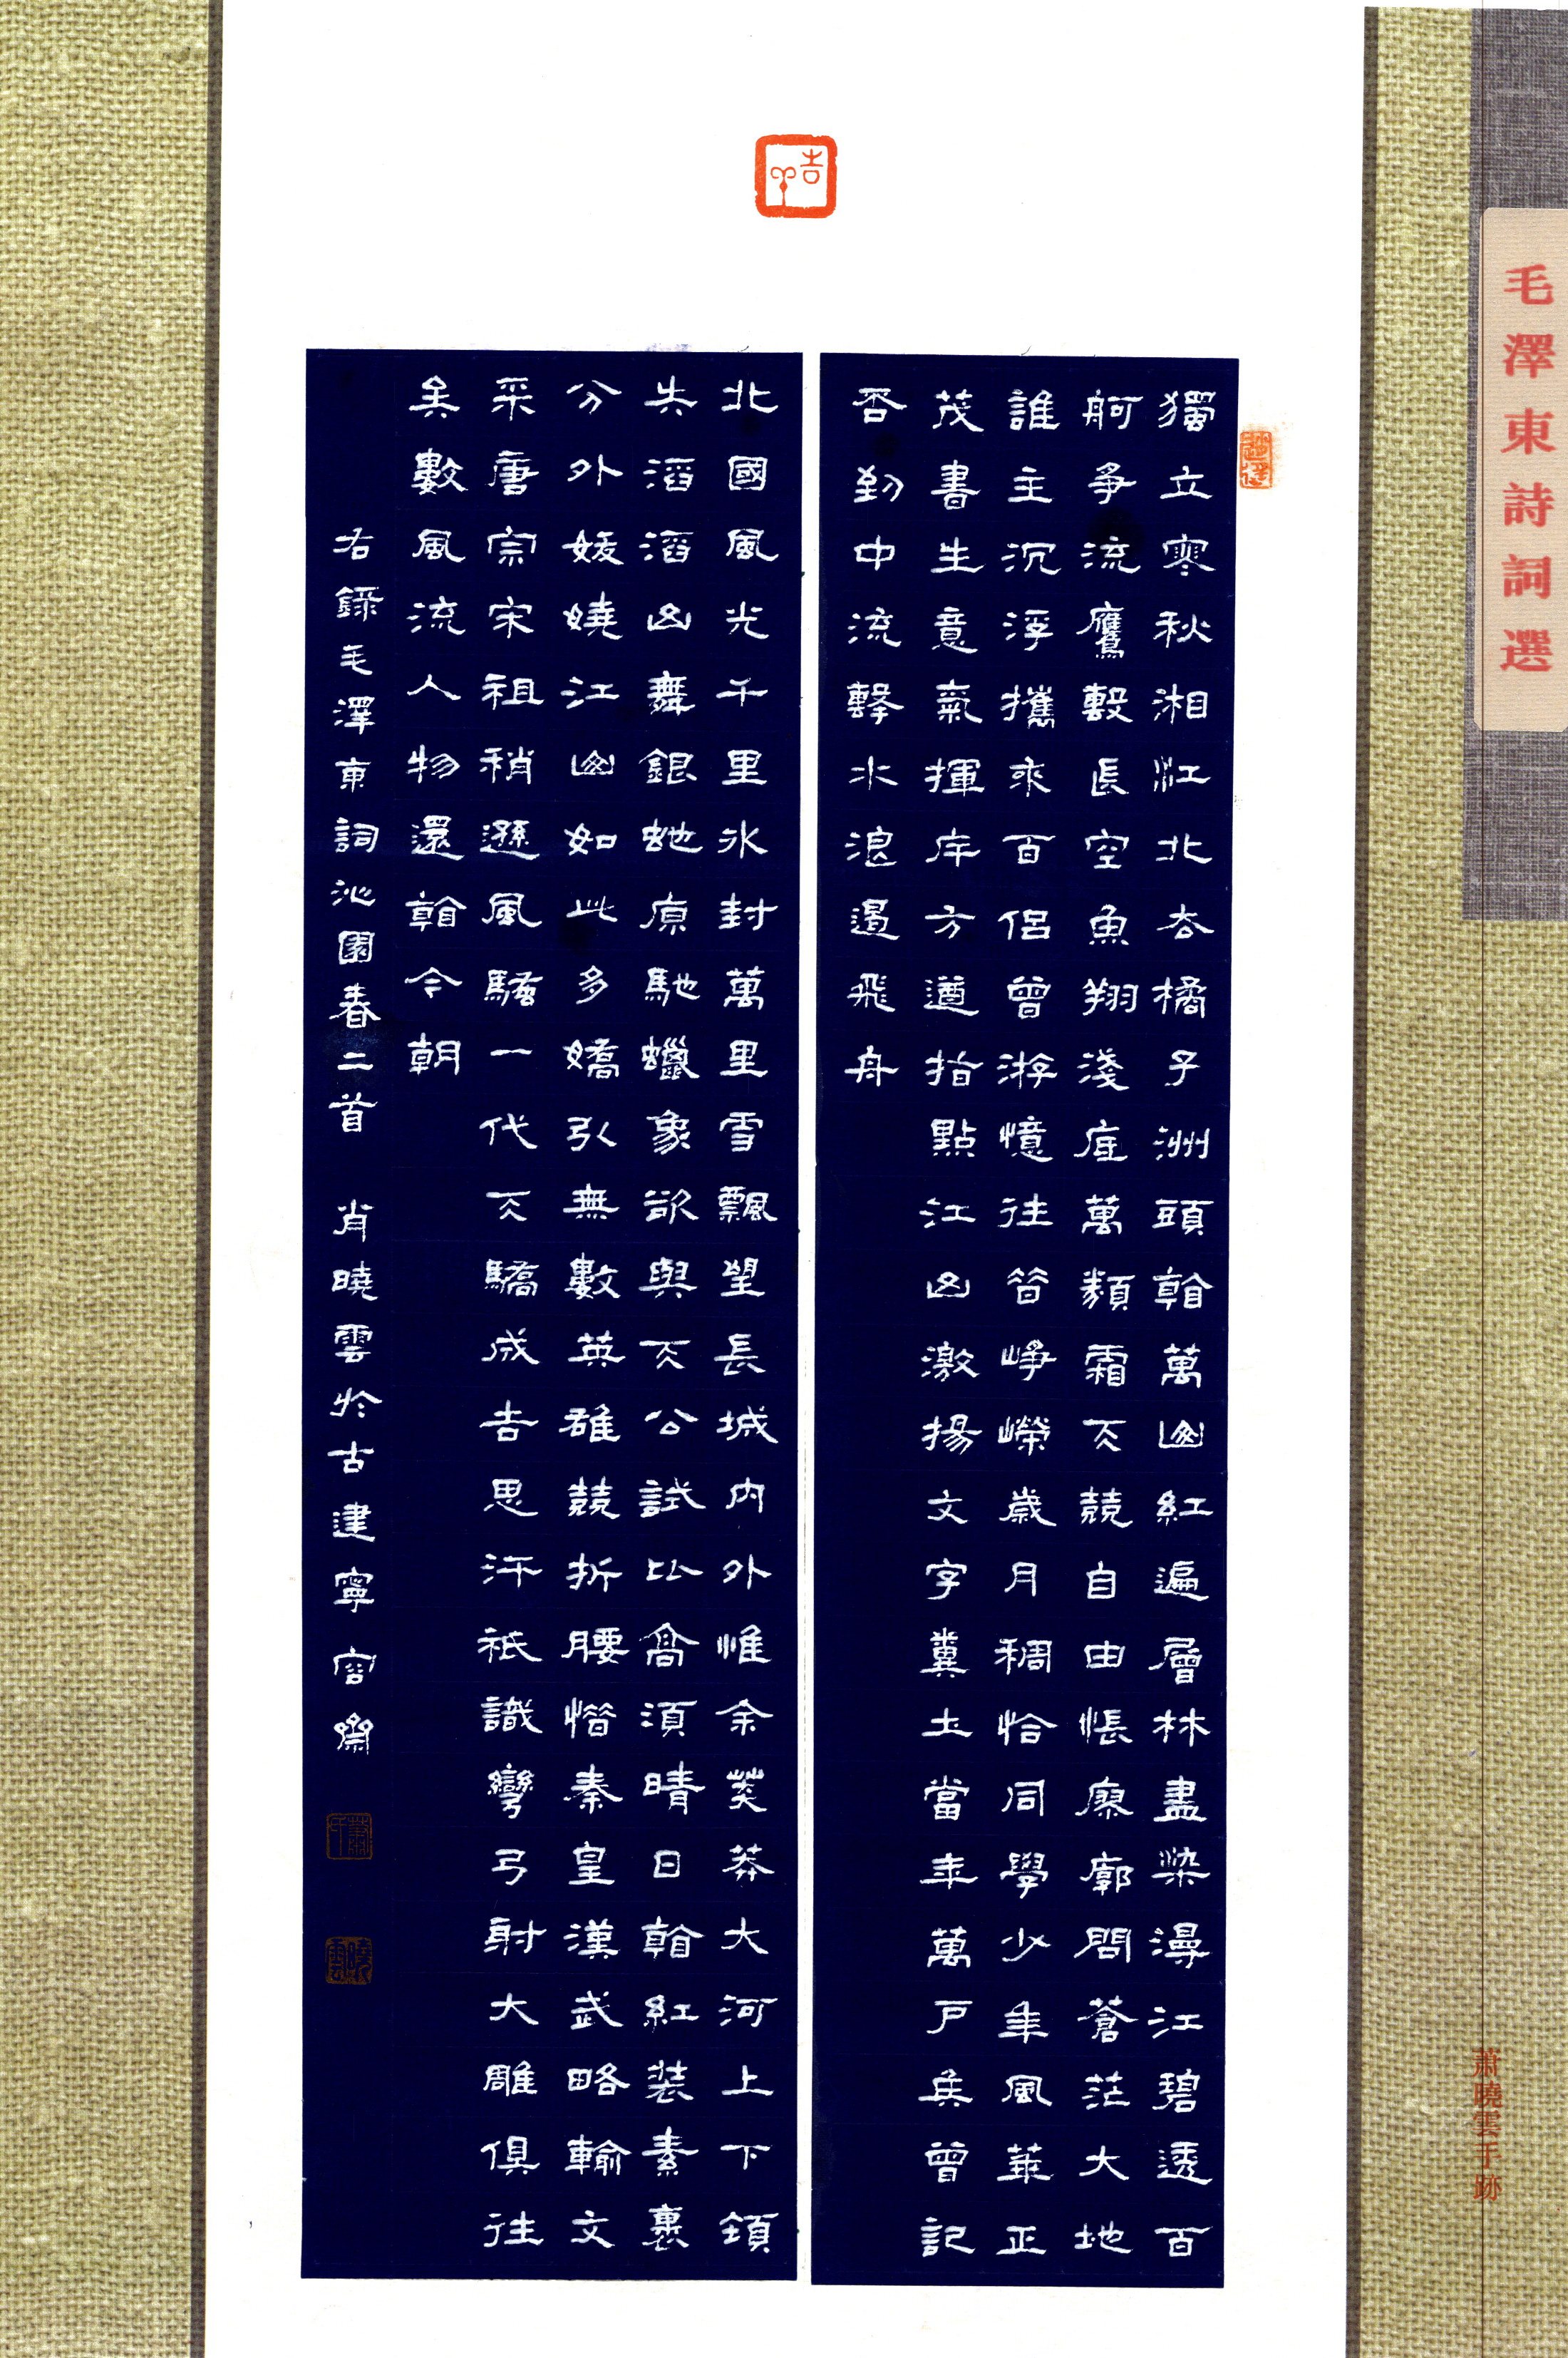 毛澤東詩詞選
獨立寒秋湘江北去橘子洲頭看萬山紅遍層林盡染漫江碧透百
舸爭流鷹擊長空魚翔淺底萬類霜天競自由悵廖廓問蒼茫大地
誰主沉浮攜來百侶曾游憶往昔崢嶸歲月稠恰同學少年風華正
茂書生意氣揮斥方遒指點江山激揚文字糞土當年萬戶侯曾記
否到中流擊水浪遏飛舟
北國風光千里冰封萬里雪飄望長城內外惟余莽莽大河上下頓
失滔滔山舞銀蛇原馳蠟象欲與天公試比高須晴日看紅裝素裹
分外妖嬈江山如此多嬌引無數英雄競折腰惜秦皇漢武略輸文
采唐宗宋祖稍遜風騷一代天驕成吉思汗祇識彎弓射大雕俱往
矣數風流人物還看今朝
右錄毛澤東詞沁園春二首 肖曉雲於古建寧容齋
曉雲
蕭曉雲手跡